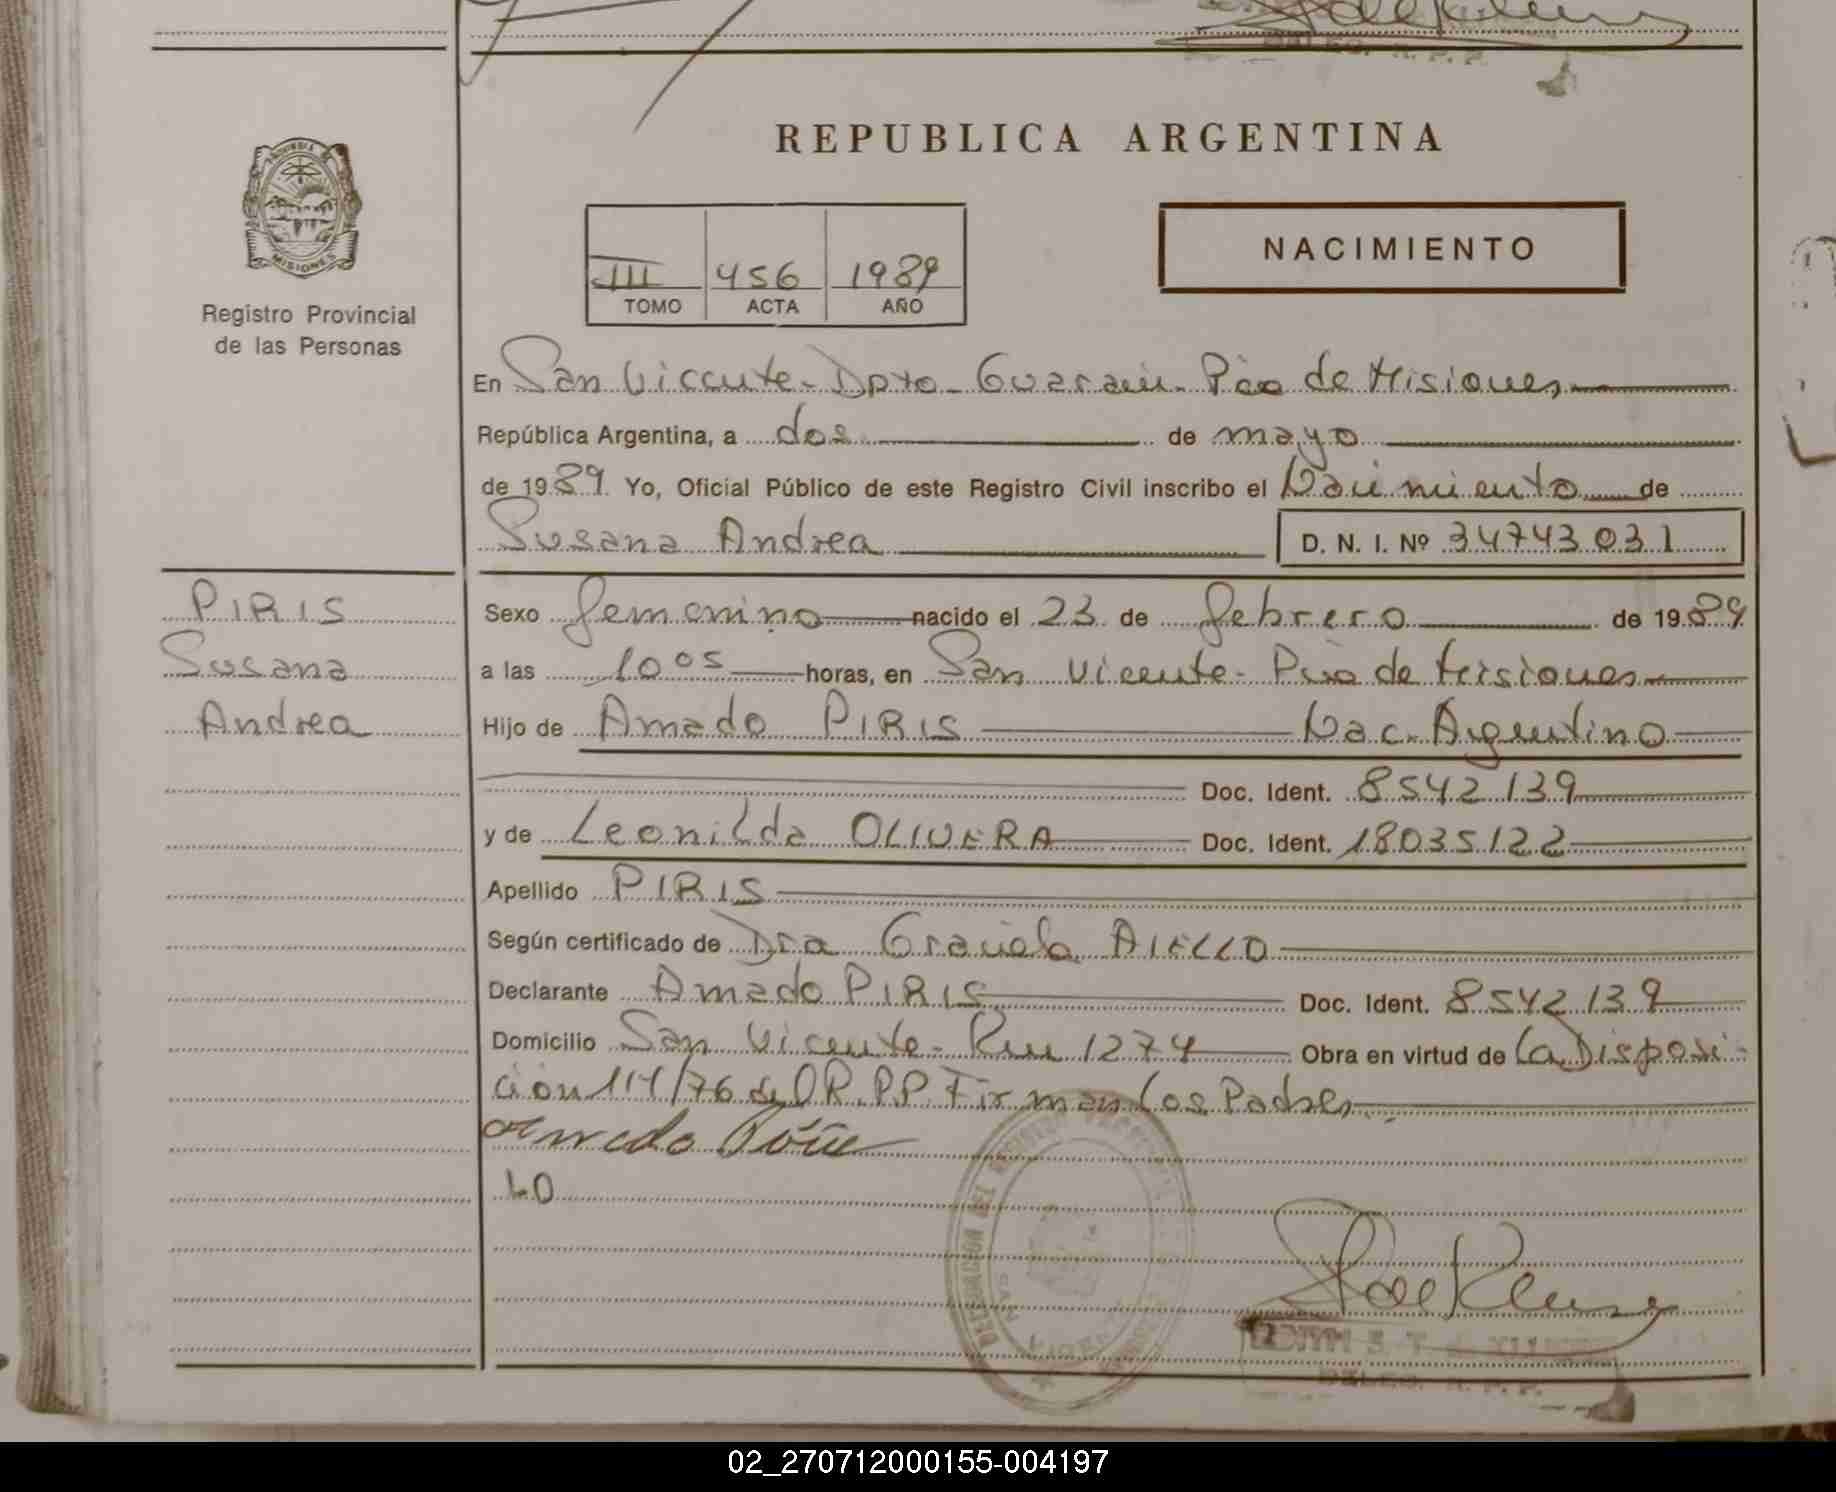 REPUBLICA ARGENTINA
PROVINCIA DE
MISIONES
Registro Provincial
de las Personas
III 456 1989
TOMO ACTA AÑO
NACIMIENTO
En San Vicente - Dpto - Guaraní - Pcia de Misiones
República Argentina, a dos de mayo
de 1989 Yo, Oficial Público de este Registro Civil inscribo el Nacimiento de
Susana Andrea D. N. I. Nº 34743031
PIRIS
Susana
Andrea
Sexo femenino nacido el 23 de febrero de 1989
a las 10 05 horas, en San Vicente - Pcia de Misiones
Hijo de Amado PIRIS Nac. Argentino
Doc. Ident. 8542139
y de Leonilda OLIVERA Doc. Ident. 18035122
Apellido PIRIS
Según certificado de Dra Graciela AIELLO
Declarante Amado PIRIS Doc. Ident. 8542139
Domicilio San Vicente - Km 1274 Obra en virtud de la Disposi-
ción 114/76 de D.R.P.P. Firman los Padres
Amado
LO
DELEGACION DEL REGISTRO
SAN
DELEG. R. P. P.
02_270712000155-004197